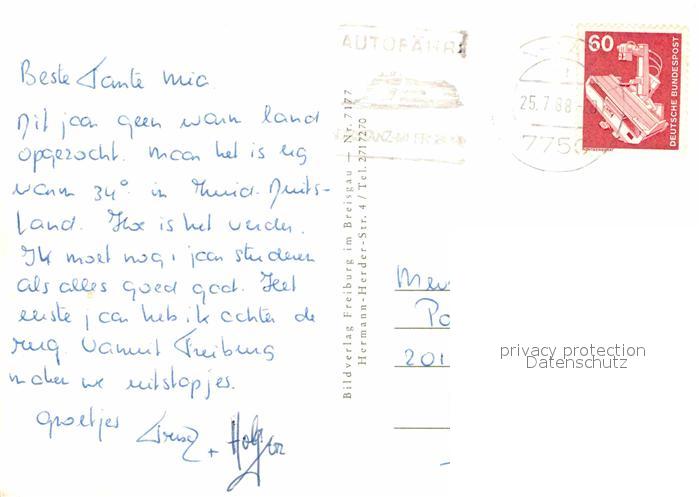 Beste Tante Mia
Dit jaar geen warm land
opgezocht. Maar het is erg
warm 34° in Zuid-Duits-
land. Hoe is het verder.
Ik moet nog 1 jaar studeren
als alles goed gaat. Het
eerste jaar heb ik achter de
rug. Vanuit Freiburg
maken we uitstapjes.
Groetjes
+ Holger
Bildverlag Freiburg im Breisgau — Nr. 7177
Hermann-Herder-Str. 4 / Tel. 271 22 70
AUTOFÄHRE
25.7.88
775
60
DEUTSCHE BUNDESPOST
Mev
Po
201
privacy protection
Datenschutz